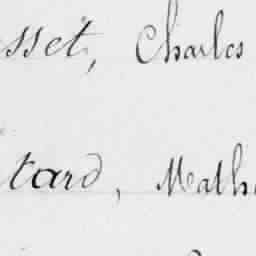 sset, Charles
tard, Math